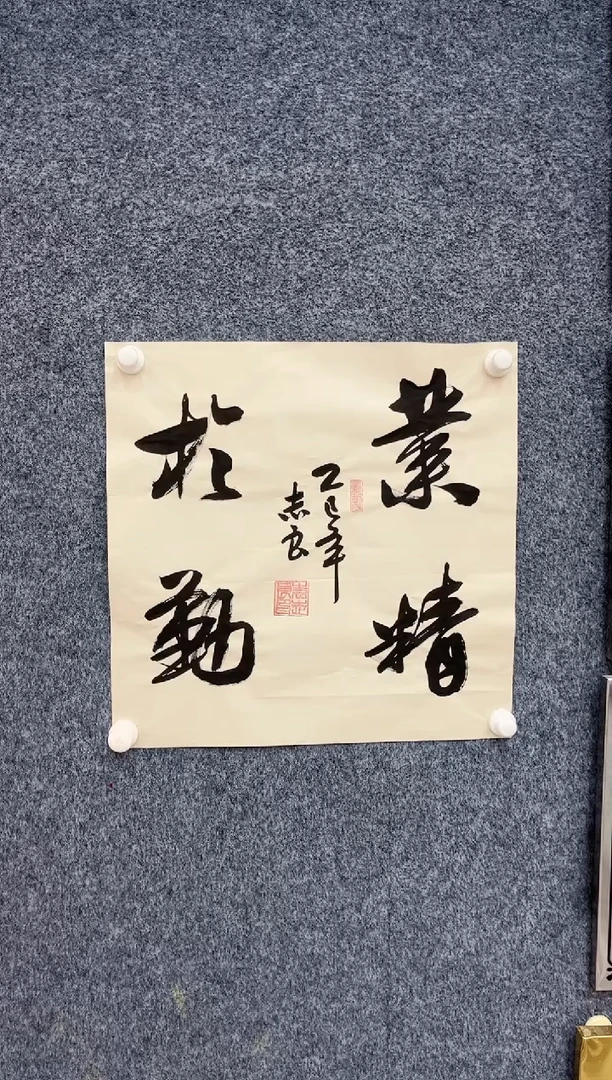 業精
於勤
乙巳年
志良